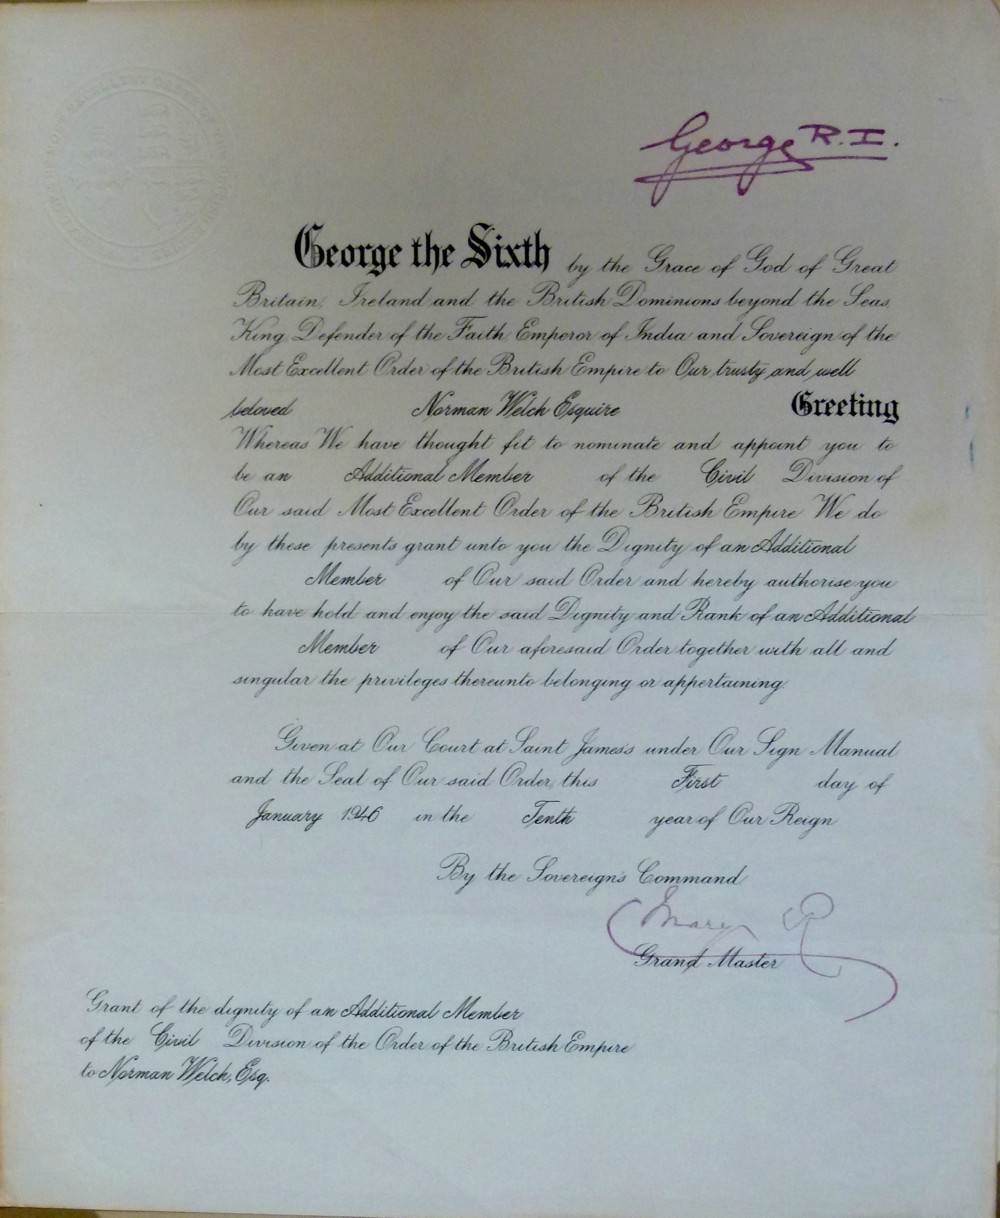 George R.I.
George the Sixth by the Grace of God of Great
Britain, Ireland and the British Dominions beyond the Seas,
King, Defender of the Faith, Emperor of India and Sovereign of the
Most Excellent Order of the British Empire to Our trusty and well
beloved Norman Welch Esquire Greeting
Whereas We have thought fit to nominate and appoint you to
be an Additional Member of the Civil Division of
Our said Most Excellent Order of the British Empire We do
by these presents grant unto you the Dignity of an Additional
Member of Our said Order and hereby authorise you
to have hold and enjoy the said Dignity and Rank of an Additional
Member of Our aforesaid Order together with all and
singular the privileges thereunto belonging or appertaining.
Given at Our Court at Saint James's under Our Sign Manual
and the Seal of Our said Order this First day of
January 1946 in the Tenth year of Our Reign
By the Sovereign's Command
Mary R
Grand Master
Grant of the dignity of an Additional Member
of the Civil Division of the Order of the British Empire
to Norman Welch, Esq.